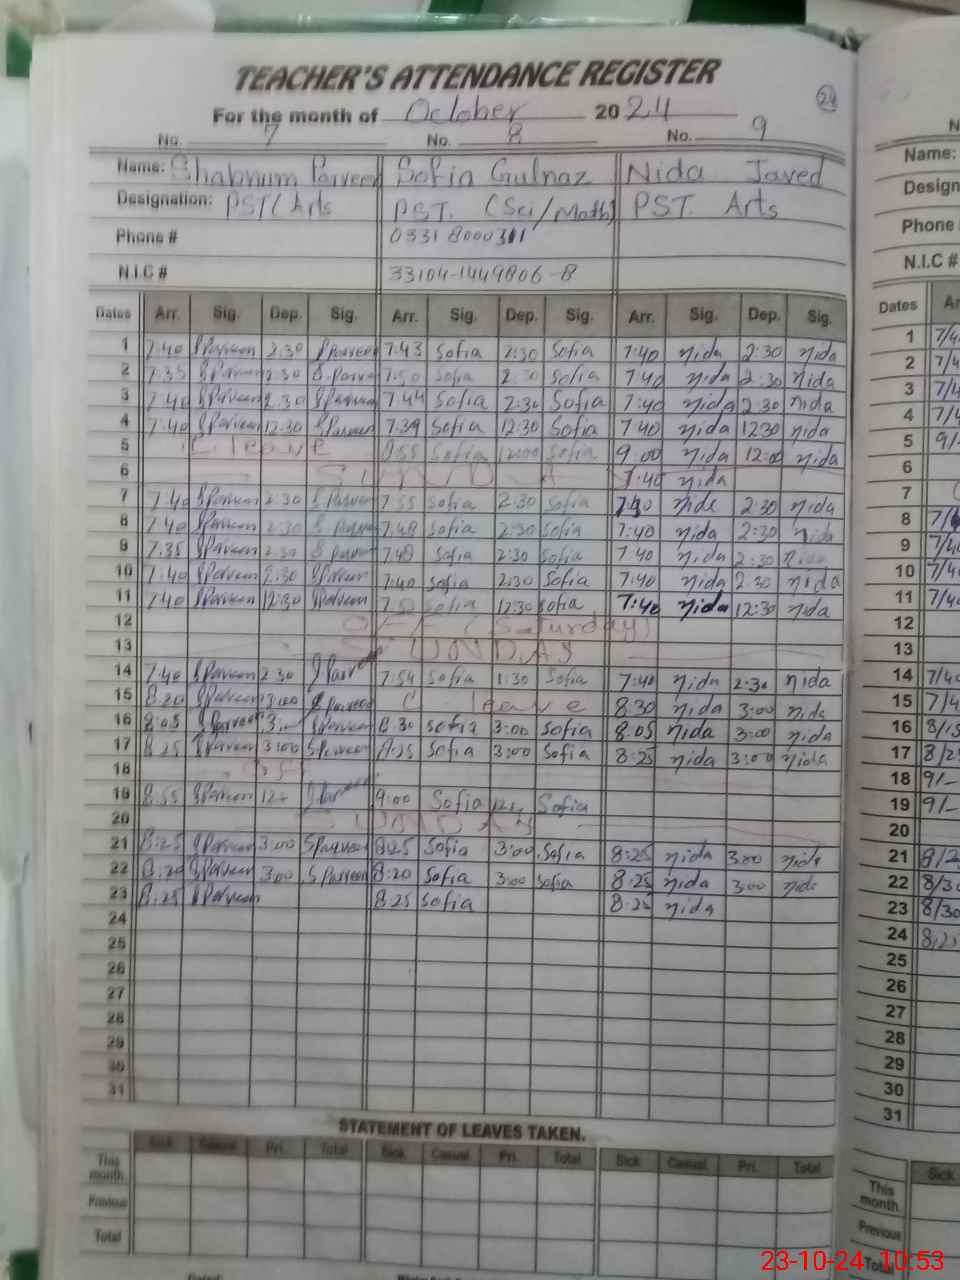 TEACHER'S ATTENDANCE REGISTER
24
For the month of October 2024
No. 7 No. 8 No. 9
Name: Shabnum Parveen Sofia Gulnaz Nida Javed
Designation: PST/Arts PST. (Sci/Math) PST. Arts
Phone # 0331 8000311
N.I.C # 33104-1449806-8
Dates Arr. Sig. Dep. Sig. Arr. Sig. Dep. Sig. Arr. Sig. Dep. Sig.
1 7:40 SParveen 2:30 SParveen 7:43 Sofia 2:30 Sofia 7:40 Nida 2:30 Nida
2 7:35 SParveen 2:30 S.Parveen 7:50 Sofia 2:30 Sofia 7:40 Nida 2:30 Nida
3 7:40 SParveen 2:30 SParveen 7:44 Sofia 2:30 Sofia 7:40 Nida 2:30 Nida
4 7:40 SParveen 12:30 SParveen 7:39 Sofia 12:30 Sofia 7:40 Nida 1230 Nida
5 C. leave Sofia 12:00 Sofia 9:00 Nida 12:00 Nida
6 SUNDAY 7:40 Nida
7 7:40 SParveen 2:30 S.Parveen 7:55 Sofia 2:30 Sofia 7:40 Nida 2:30 Nida
8 7:40 SParveen 2:30 S.Parveen 7:48 Sofia 2:30 Sofia 7:40 Nida 2:30 Nida
9 7:35 SParveen 2:30 S.Parveen 7:48 Sofia 2:30 Sofia 7:40 Nida 2:30 Nida
10 7:40 SParveen 2:30 SParveen 7:40 Sofia 2:30 Sofia 7:40 Nida 2:30 Nida
11 7:40 SParveen 12:30 SParveen Sofia 12:30 Sofia 7:40 Nida 12:30 Nida
12 OFF (Saturday)
13 SUNDAY
14 7:40 SParveen 2:30 SParveen 7:54 Sofia 1:30 Sofia 7:40 Nida 2:30 Nida
15 8:20 SParveen 3:00 SParveen C leave 8:30 Nida 3:00 Nida
16 8:05 SParveen 3:- SParveen 8:30 Sofia 3:00 Sofia 8:05 Nida 3:00 Nida
17 8:25 SParveen 3:00 SParveen 8:25 Sofia 3:00 Sofia 8:25 Nida 3:00 Nida
18 Off
19 8:55 SParveen SParveen 9:00 Sofia Sofia
20 SUNDAY
21 8:25 SParveen 3:00 SParveen 8:25 Sofia 3:00 Sofia 8:25 Nida 3:00 Nida
22 8:20 SParveen 3:00 SParveen 8:20 Sofia 3:00 Sofia 8:25 Nida 3:00 Nida
23 8:25 SParveen 8:25 Sofia 8:25 Nida
24
25
26
27
28
29
30
31
STATEMENT OF LEAVES TAKEN.
Sick Casual Pri. Total Sick Casual. Pri. Total Sick Casual. Pri. Total
This month
Previous
Total
Name:
Phone
N.I.C #
Dates
1 7/4
2 7/4
3 7/4
4 7/4
5 9/-
6
7
8
9 7/4
10 7/4
11 7/4
12
13
14 7/4
15 7/4
16 8/15
17 8/2
18 9/-
19 9/-
20
21 8/2
22 8/30
23 8/30
24
25
26
27
28
29
30
31
Sick
This month
Previous
Total
23-10-24 10:53